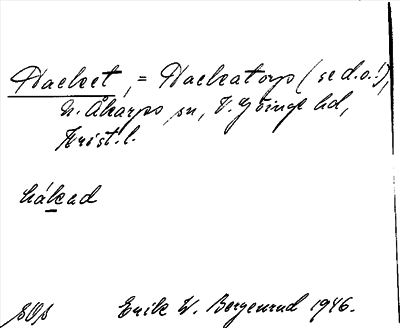 Hacket, = Hackatorp (se d.o.!),
N. Åkarps sn, V. Göinge hd,
Krist. l.
hákad
SOS Erik W. Bergenrud 1946.